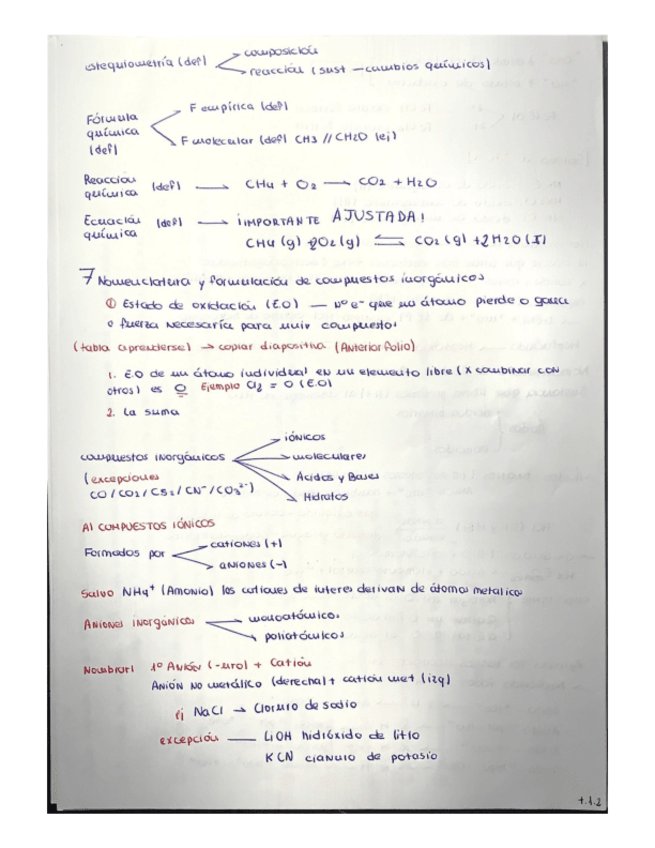 estequiometría (def)
composición
reacción (sust - cambios químicos)
Fórmula
química
(def)
F empírica (def)
F molecular (def) CH3 // CH2O (ej)
Reacción
química (def) → CH4 + O2 → CO2 + H2O
Ecuación
química (def) → ¡IMPORTANTE AJUSTADA!
CH4 (g) + 2O2 (g) ⇌ CO2 (g) + 2H2O (l)
7 Nomenclatura y formulación de compuestos inorgánicos
① Estado de oxidación (E.O) — Nº e- que un átomo pierde o gana
o fuerza necesaria para unir compuestos
(tabla aprenderse) → copiar diapositiva (Anterior folio)
1. E.O de un átomo individual en un elemento libre (x combinar con
otros) es 0 Ejemplo Cl2 = 0 (E.O)
2. La suma
compuestos inorgánicos
(excepciones
CO / CO2 / CS2 / CN- / CO3 2-)
iónicos
moleculares
Ácidos y Bases
Hidratos
A) COMPUESTOS IÓNICOS
Formados por
cationes (+)
aniones (-)
Salvo NH4+ (Amonio) los cationes de interes derivan de átomos metalicos
Aniones inorgánicos
monoatómicos
poliatómicos
Nombrar 1º Anión (-uro) + Catión
Anión No metálico (derecha) + catión met (izq)
ej NaCl → Cloruro de sodio
excepción — LiOH hidróxido de litio
KCN cianuro de potasio
1.1.2